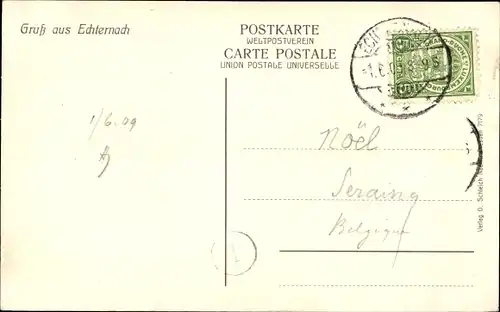 Gruß aus Echternach
POSTKARTE
WELTPOSTVEREIN
CARTE POSTALE
UNION POSTALE UNIVERSELLE
1/6.09
Noël
Seraing
Belgique
Verlag O. Schleich